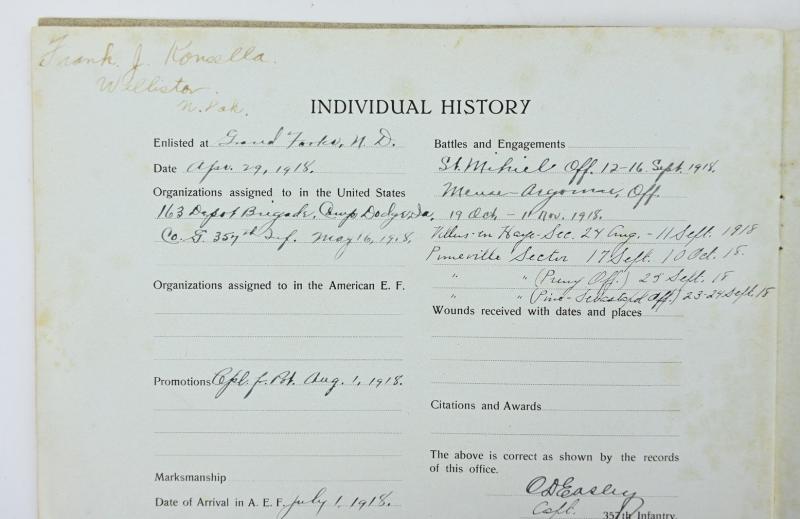 Frank. J. Konsella.
Williston.
N. Dak.
INDIVIDUAL HISTORY
Enlisted at Grand Forks, N. D.
Date Apr. 29, 1918.
Organizations assigned to in the United States
163 Depot Brigade, Camp Dodge, Ia.
Co. G. 357th Inf. May 16, 1918.
Organizations assigned to in the American E. F.
Promotions Cpl. f. Pvt. Aug. 1, 1918.
Marksmanship
Date of Arrival in A. E. F. July 1, 1918.
Battles and Engagements
St. Mihiel Off. 12-16 Sept. 1918.
Meuse-Argonne, Off.
19 Oct - 11 Nov. 1918.
Villers-en Haye-Sec. 24 Aug. - 11 Sept. 1918
Sector 17 Sept. 10 Oct. 18.
" " ( Off.) 25 Sept. 18
" " ( Off.) 23-24 Sept. 18
Wounds received with dates and places
Citations and Awards
The above is correct as shown by the records
of this office.
C D Easley
Capt. 357th Infantry.